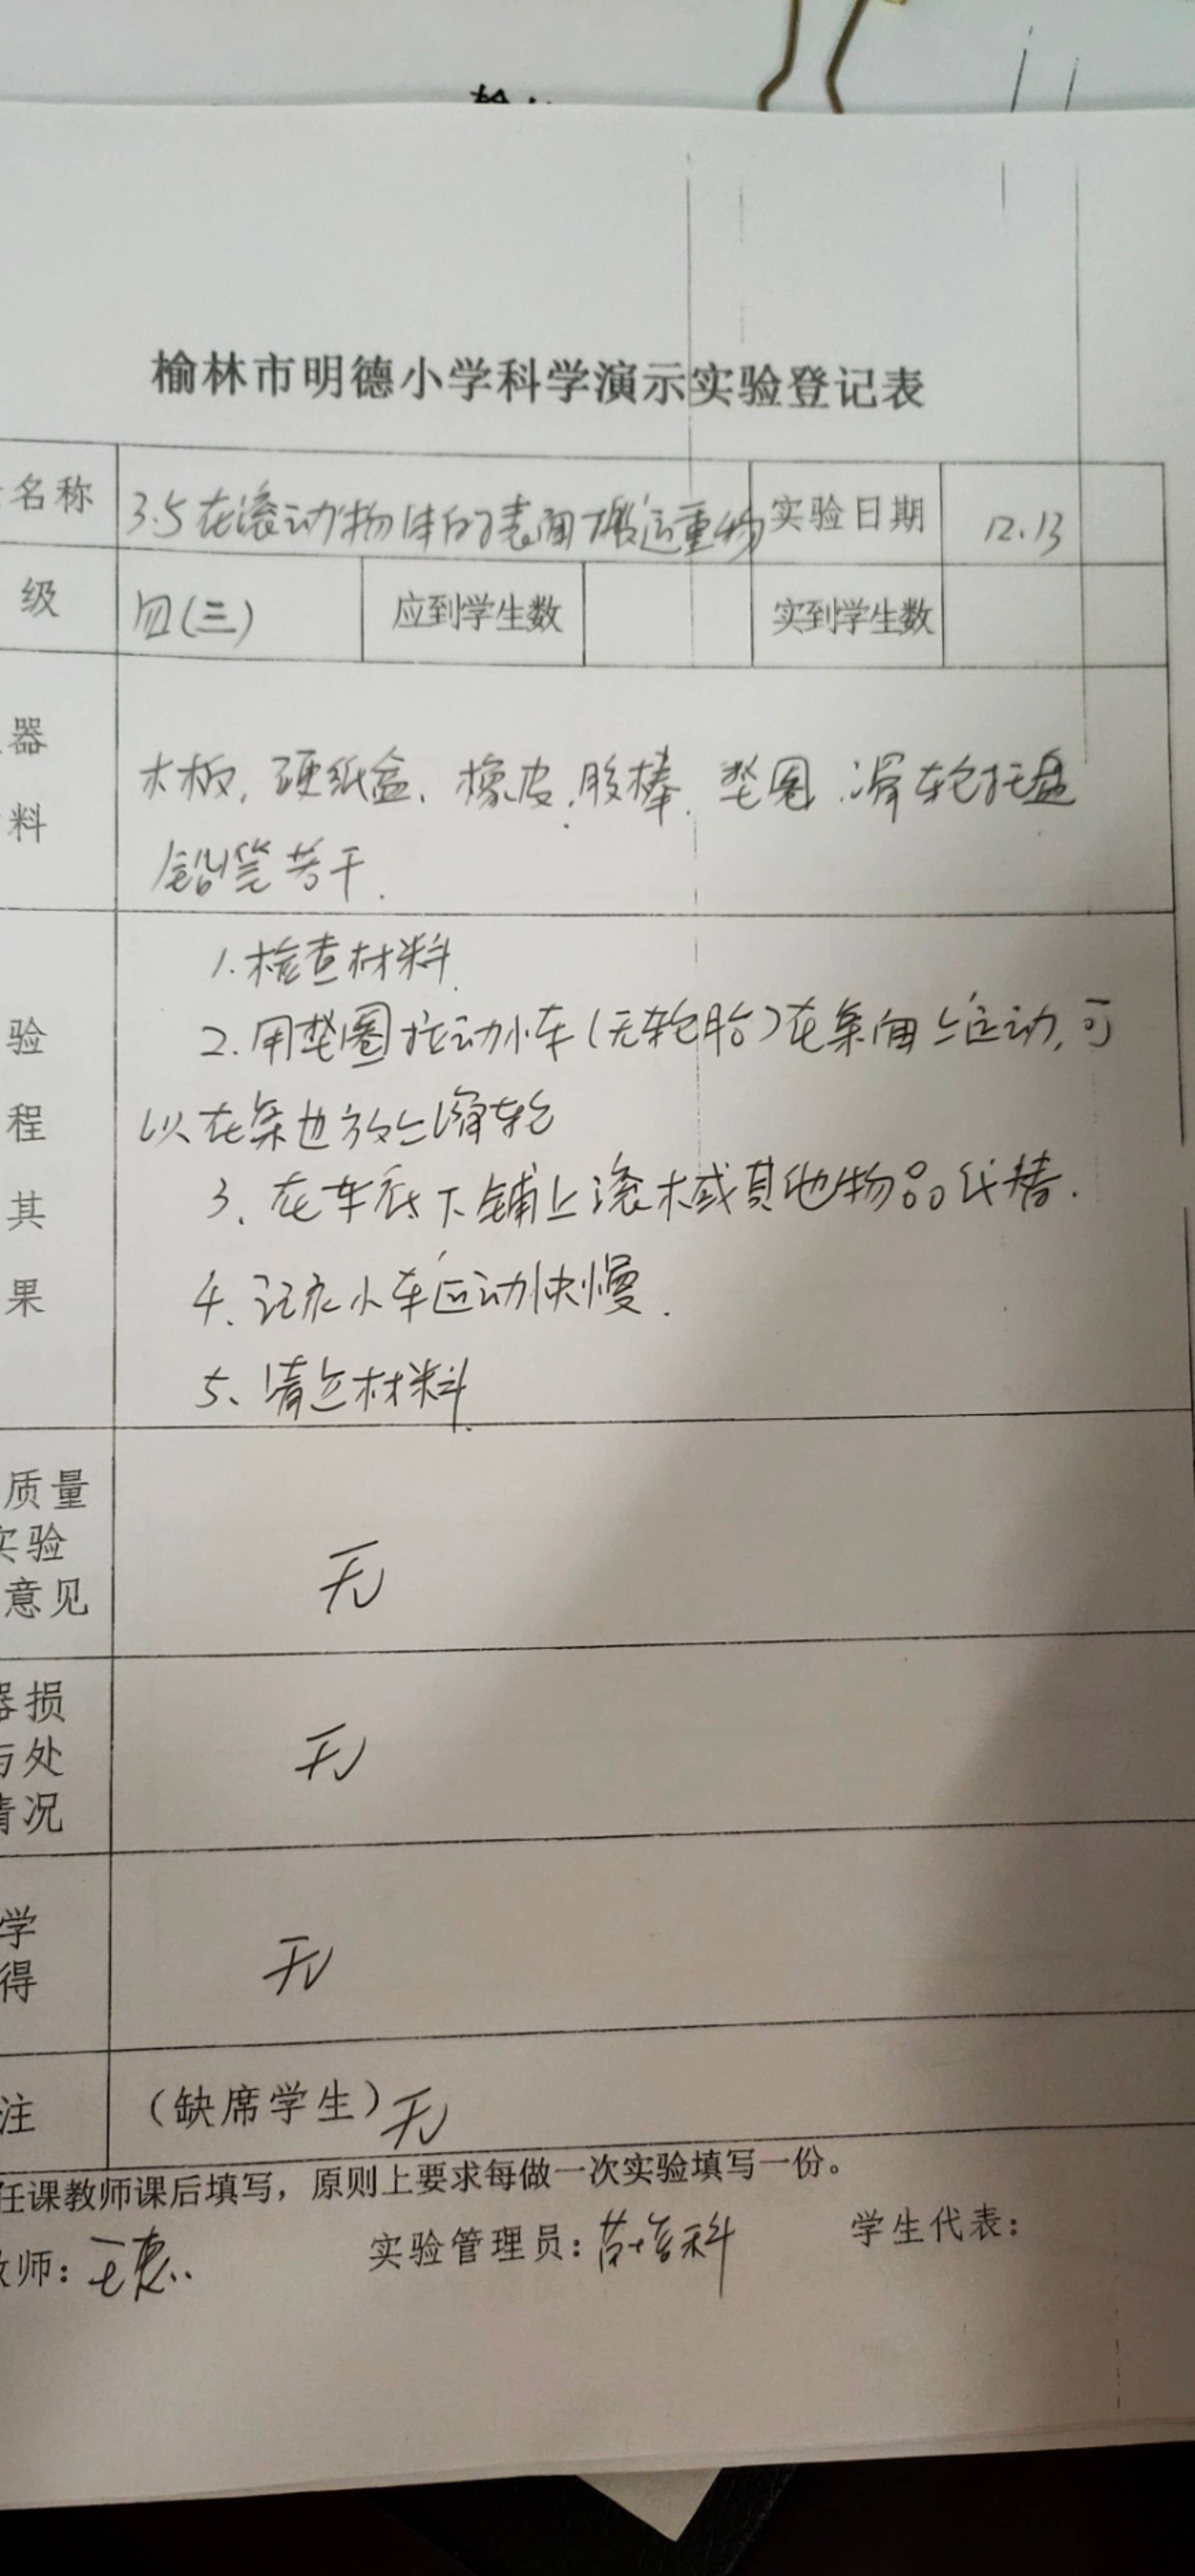 榆林市明德小学科学演示实验登记表
名称 3.5在滚动物体的表面搬运重物 实验日期 12.13
级 四(三) 应到学生数 实到学生数
器
料
木板、硬纸盒、橡皮、胶棒、垫圈、滑轮托盘
铅笔若干.
验
程
其
果
1.检查材料.
2.用垫圈拉动小车(无轮胎)在桌面上运动,可
以在桌边放上滑轮
3、在车底下铺上滚木或其他物品代替.
4、记录小车运动快慢.
5、清点材料.
质量
实验
意见
无
器损
与处
情况
无
学
得
无
注 (缺席学生)无
任课教师课后填写，原则上要求每做一次实验填写一份。
教师: 实验管理员: 学生代表: